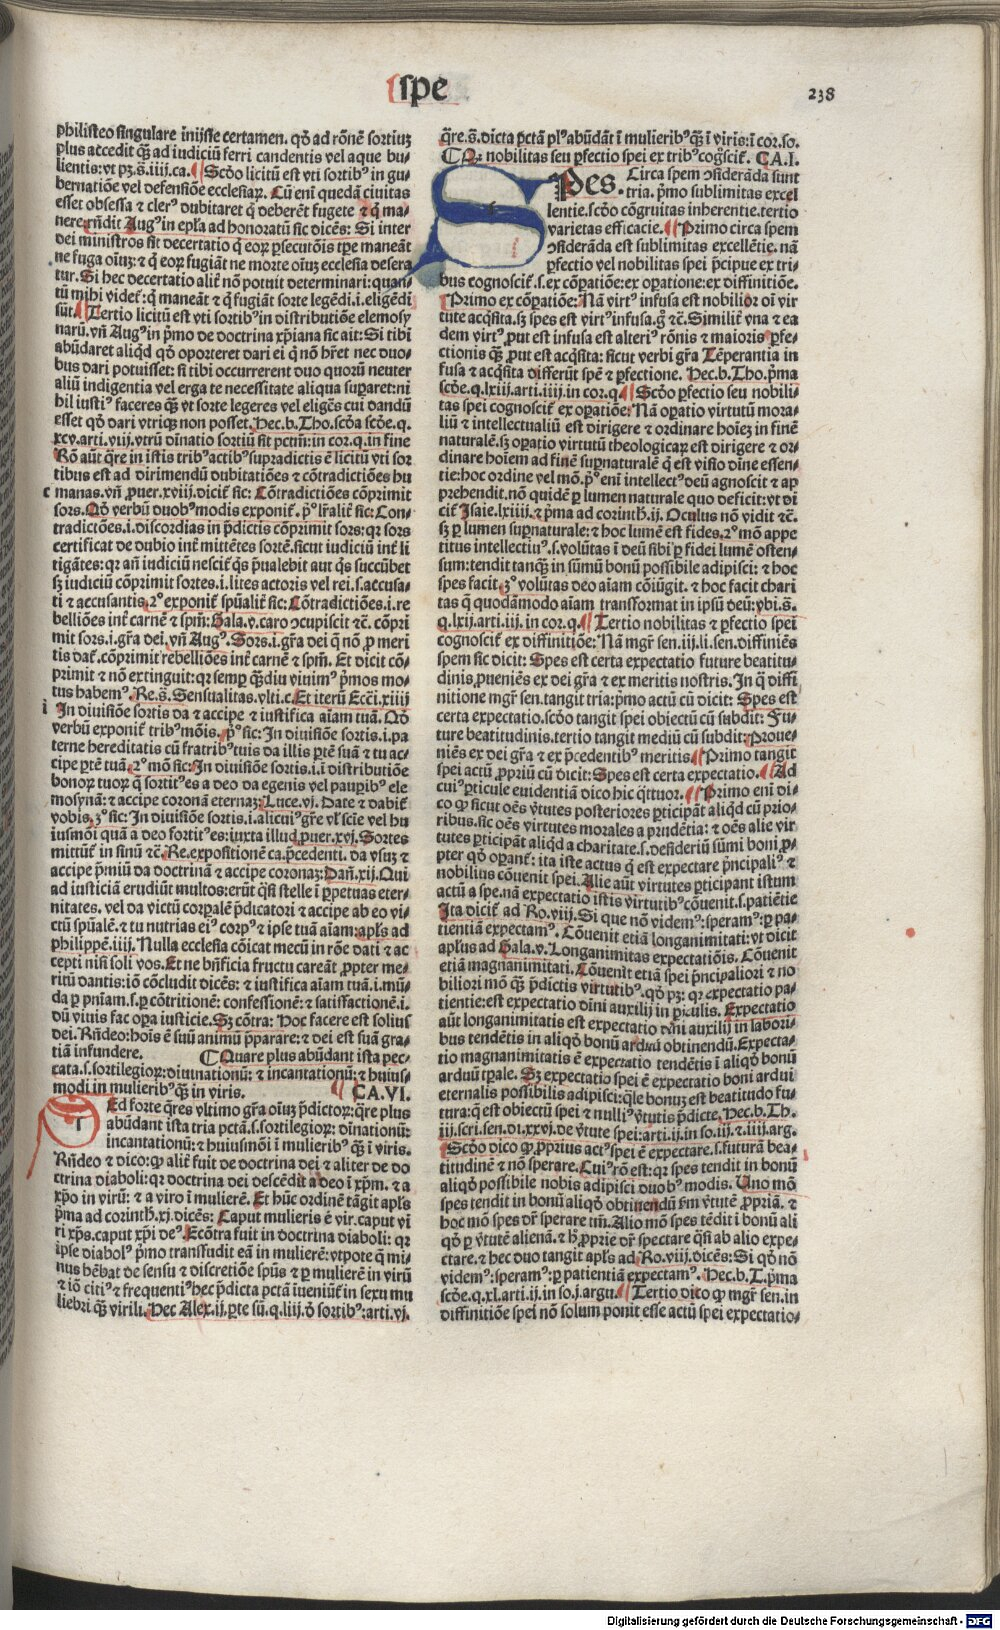 spe
238
philisteo singulare inijsse certamen. qđ ad rōnē sortiuʒ
plus accedit q̄ʒ ad iudiciū ferri candentis vel aque bu-
lientis: vt pʒ.s̄.iiij.ca. Scđo licitū est vti sortibꝰ in gu-
bernatiōe vel defensiōe ecclesiaꝝ. Cū eni quedā ciuitas
esset obsessa ⁊ clerꝰ dubitaret q̇ deberēt fugete ⁊ q̇ ma-
nere rñdit Augꝰ in epl̄a ad honoratū sic dicēs: Si inter
dei ministros sit decertatio q̇ eoꝝ ꝑsecutōis tꝑe maneāt
ne fuga oīuʒ: ⁊ q̇ eoꝝ fugiāt ne morte oīuʒ ecclesia desera
tur. Si hec decertatio alir̄ nō potuit determinari: quan-
tū mihi videt̄: q̇ maneāt ⁊ q̇ fugiāt sorte legēdi.i.eligēdi
sūt. Tertio licitū est vti sortibꝰ in distributiōe elemosy
narū. vñ Augꝰ in p̄mo de doctrina xp̄iana sic ait: Si tibi
abūdaret aliqđ qđ oporteret dari ei q̇ nō hr̄et nec duo-
bus dari potuisset: si tibi occurrerent duo quorū neuter
aliū indigentia vel erga te necessitate aliqua suparet: ni
hil iustiꝰ faceres q̄ʒ vt sorte legeres vel eligēs cui dandū
esset qđ dari vtriqʒ non posset. Hec.b.Tho.scđa scđe.q.
xcv.arti.viij.vtrū diuinatio sortiū sit pctm̄: in cor.q. in fine
Rō aūt q̄re in istis tribꝰ actibꝰ supradictis ē licitū vti sor
tibus est ad dirimendū dubitatiōes ⁊ cōtradictiōes hu
c manas. vñ ꝓuer.xviij.dicit̄ sic: Cōtradictiōes cōprimit
sors. Qđ verbū duobꝰ modis exponit̄. p̄ꝰ lr̄alit̄ sic: Con-
tradictiōes.i.discordias in p̄dictis cōprimit sors: qꝛ sors
certificat de dubio int̄ mittētes sortē. sicut iudiciū int̄ li
tigātes: qꝛ añ iudiciū nescit̄ q̇s p̄ualebit aut q̇s succūbet
sʒ iudiciū cōprimit sortes.i.lites actoris vel rei.s.accusa-
ti ⁊ accusantis. 2ꝰ exponit̄ spūalit̄ sic: Cōtradictiōes.i.re
belliōes int̄ carnē ⁊ spm̄: Gala.v.caro ꝯcupiscit ⁊c̄. cōpri
mit sors.i.gr̄a dei. vñ Augꝰ. Sors.i.gr̄a dei q̇ nō ꝓ meri
tis dat̄. cōprimit rebelliōes int̄ carnē ⁊ spm̄. Et dicit cō-
primit ⁊ nō extinguit: qꝛ semꝑ q̄ʒdiu viuimꝰ p̄mos mo-
tus habemꝰ. Re.s̄. Sensualitas.vlti.c. Et iterū Ecci.xiiij
i In diuisiōe sortis da ⁊ accipe ⁊ iustifica aīam tuā. Qđ
verbū exponit̄ tribꝰ mōis. p̄ꝰ sic: In diuisiōe sortis.i.pa
terne hereditatis cū fratribꝰ tuis da illis ꝑtē suā ⁊ tu ac-
cipe ꝑtē tuā. 2ꝰ mō sic: In diuisiōe sortis.i.i distributiōe
bonoꝝ tuoꝝ q̇ sortitꝰ es a deo da egenis vel pauꝑibꝰ ele
mosynā: ⁊ accipe coronā eternaʒ: Luce.vj. Date ⁊ dabit̄
vobis. 3ꝰ sic: In diuisiōe sortis.i.alicuiꝰ gr̄e vl̄ scīe vel hu
iusmōi quā a deo fortitꝰ es: iuxta illud ꝓuer.xvj. Sortes
mittūt̄ in sinū ⁊c̄. Re.expositionē ca.p̄cedenti. da vsuʒ ⁊
accipe p̄miū da doctrinā ⁊ accipe coronaʒ: Dañ.xij. Qui
ad iusticiā erudiūt multos: erūt q̄si stelle i ꝑpetuas eter-
nitates. vel da victū corꝑalē p̄dicatori ⁊ accipe ab eo vi-
ctū spūalē. ⁊ tu nutrias eiꝰ corpꝰ ⁊ ipse tuā aīam: apl̄s ad
philippē.iiij. Nulla ecclesia cōicat mecū in rōe dati ⁊ ac
cepti nisi soli vos. Et ne bn̄ficia fructu careāt ꝓpter me-
ritū dantis: iō cōcludit dicēs: ⁊ iustifica aīam tuā.i.mū-
da ꝑ pniam.s.ꝑ cōtritionē: confessionē: ⁊ satisfactionē.i.
dū viuis fac oꝑa iusticie. Sʒ cōtra: Hoc facere est solius
dei. Rñdeo: hoīs ē suū animū p̄parare: ⁊ dei est suā gra-
tiā infundere. Quare plus abūdant ista pec-
cata.s.sortilegioꝝ: diuinationū: ⁊ incantationū: ⁊ huius-
modi in mulieribꝰ q̄ʒ in viris. CA.VI.
Sed forte q̄res vltimo gr̄a oīuʒ p̄dictoꝝ: q̄re plus
abūdant ista tria pctā.s.sortilegioꝝ: diuinationū:
incantationū: ⁊ huiusmōi i mulieribꝰ q̄ʒ i viris.
Rñdeo ⁊ dico: ꝙ alit̄ fuit de doctrina dei ⁊ aliter de do
ctrina diaboli: qꝛ doctrina dei descēdit a deo i xp̄m. ⁊ a
xp̄o in virū: ⁊ a viro i mulierē. Et hūc ordinē tāgit apl̄s
p̄ma ad corinth.xj.dicēs: Caput mulieris ē vir. caput vi
ri xp̄s. caput xp̄i deꝰ. Ecōtra fuit in doctrina diaboli: qꝛ
ipse diabolꝰ p̄mo transfudit eā in mulierē: vtpote q̇ mi-
nus hēbat de sensu ⁊ discretiōe spūs ⁊ ꝑ mulierē in virū
⁊ iō citiꝰ ⁊ frequentiꝰ hec p̄dicta pctā iueniūt̄ in sexu mu
liebri q̄ʒ virili. Hec Alex.ij.ꝑte sū.q.liij.đ sortibꝰ: arti.vj.
q̄re.s̄.dicta pctā plꝰ abūdāt i mulieribꝰ q̄ʒ i viris: i cor.so.
Qꝛ nobilitas seu ꝑfectio spei ex tribꝰ cogscit̄. CA.I.
SPes. Circa spem ꝯsiderāda sunt
tria. p̄mo sublimitas excel
lentie. scđo cōgruitas inherentie. tertio
varietas efficacie. Primo circa spem
ꝯsiderāda est sublimitas excellētie. nā
ꝑfectio vel nobilitas spei p̄cipue ex tri-
bus cognoscit̄.s.ex cōꝑatiōe: ex oꝑatione: ex diffinitiōe.
Primo ex cōꝑatiōe: Nā virtꝰ infusa est nobilior oi vir
tute acq̇sita. sʒ spes est virtꝰ infusa. ḡ ⁊c̄. Similit̄ vna ⁊ ea
dem virtꝰ ꝓut est infusa est alteriꝰ rōnis ⁊ maioris ꝑfe-
ctionis q̄ʒ ꝓut est acq̇sita: sicut verbi gr̄a Tēperantia in
fusa ⁊ acq̇sita differūt spē ⁊ ꝑfectione. Hec.b.Tho.p̄ma
scđe.q.lxiij.arti.iiij.in cor.q. Scđo ꝑfectio seu nobili-
tas spei cognoscit̄ ex oꝑatiōe: Nā oꝑatio virtutū mora-
liū ⁊ intellectualiū est dirigere ⁊ ordinare hoīeʒ in finē
naturalē. sʒ oꝑatio virtutū theologicaꝝ est dirigere ⁊ or-
dinare hoīem ad finē supnaturalē q̇ est visio dīne essen-
tie: hoc ordine vel mō. p̄ꝰ eni intellectꝰ deū agnoscit ⁊ ap
prehendit. nō quidē ꝑ lumen naturale quo deficit: vt di
cit̄ Isaie.lxiiij. ⁊ p̄ma ad corinth.ij. Oculus nō vidit ⁊c̄.
sʒ ꝑ lumen supnaturale: ⁊ hoc lumē est fides. 2ꝰ mō appe
titus intellectiuꝰ.s.volūtas i deū sibi ꝑ fidei lumē osten-
sum: tendit tanq̄ʒ in sūmū bonū possibile adipisci: ⁊ hoc
spes facit. 3ꝰ volūtas deo aīam cōiūgit. ⁊ hoc facit chari
tas q̄ quodāmodo aīam transformat in ipsū deū: vbi.s̄.
q.lxij.arti.iij. in cor.q. Tertio nobilitas ⁊ ꝑfectio spei
cognoscit̄ ex diffinitiōe: Nā mgr̄ sen.iij.li.sen.diffiniēs
spem sic dicit: Spes est certa expectatio future beatitu-
dinis ꝓueniēs ex dei gr̄a ⁊ ex meritis nostris. In q̇ diffi
nitione mgr̄ sen.tangit tria: p̄mo actū cū dicit: Spes est
certa expectatio. scđo tangit spei obiectū cū subdit: Fu-
ture beatitudinis. tertio tangit mediū cū subdit: Proue-
niēs ex dei gr̄a ⁊ ex p̄cedentibꝰ meritis. Primo tangit
spei actū ꝓpriū cū dicit: Spes est certa expectatio. Ad
cuiꝰ ꝑticule euidentiā dico hic q̇ttuor. Primo eni di-
co ꝙ sicut oēs v̄tutes posteriores ꝑticipāt aliqđ cū prio-
ribus. sic oēs virtutes morales a prudētia: ⁊ oēs alie vir
tutes ꝑticipāt aliqđ a charitate.s.desideriū sūmi boni ꝓ-
pter qđ oꝑant̄: ita iste actus q̇ est expectare p̄ncipaliꝰ ⁊
nobilius cōuenit spei. Alie aūt virtutes ꝑticipant istum
actū a spe. nā expectatio istis virtutibꝰ cōuenit.s.patiētie
Ita dicit̄ ad Ro.viij. Si que nō videmꝰ: speramꝰ: ꝑ pa-
tientiā expectamꝰ. Cōuenit etiā longanimitati: vt dicit
apl̄us ad Gala.v. Longanimitas expectatiōis. Cōuenit
etiā magnanimitati. Cōuenit etiā spei p̄ncipaliori ⁊ no
biliori mō q̄ʒ p̄dictis virtutibꝰ. qđ pʒ: qꝛ expectatio pa-
tientie: est expectatio diui auxilij in ꝑiculis. Expectatio
aūt longanimitatis est expectatio diui auxilij in labori-
bus tendētis in aliqđ bonū arduū obtinendū. Expecta-
tio magnanimitatis ē expectatio tendētis i aliqđ bonū
arduū tꝑale. Sʒ expectatio spei ē expectatio boni ardui
eternalis possibilis adipisci: q̄le bonuʒ est beatitudo fu-
tura: q̄ est obiectū spei ⁊ nulliꝰ v̄tutis p̄dicte. Hec.b.Th.
iij.scri.sen.di.xxvj.de v̄tute spei: arti.ij.in so.iij.⁊.iiij.arg.
Scđo dico ꝙ ꝓprius actꝰ spei ē expectare.s.futurā bea-
titudinē ⁊ nō sperare. Cuiꝰ rō est: qꝛ spes tendit in bonū
aliqđ possibile nobis adipisci duobꝰ modis. Uno mō
spes tendit in bonū aliqđ obtinendū ẜm v̄tutē ꝓpriā. ⁊
hoc mō spes dr̄ sperare tm̄. Alio mō spes tēdit i bonū ali
qđ ꝑ v̄tutē alienā. ⁊ ħ ꝓprie dr̄ spectare q̄si ab alio expe-
ctare. ⁊ hec duo tangit apl̄s ad Ro.viij.dicēs: Si qđ nō
videmꝰ: speramꝰ: ꝑ patientiā expectamꝰ. Hec.b.T.p̄ma
scđe.q.xl.arti.ij.in so.j.argu. Tertio dico ꝙ mgr̄ sen.in
diffinitiōe spei nō solum ponit esse actū spei expectatio-
Digitalisierung gefördert durch die Deutsche Forschungsgemeinschaft - DFG